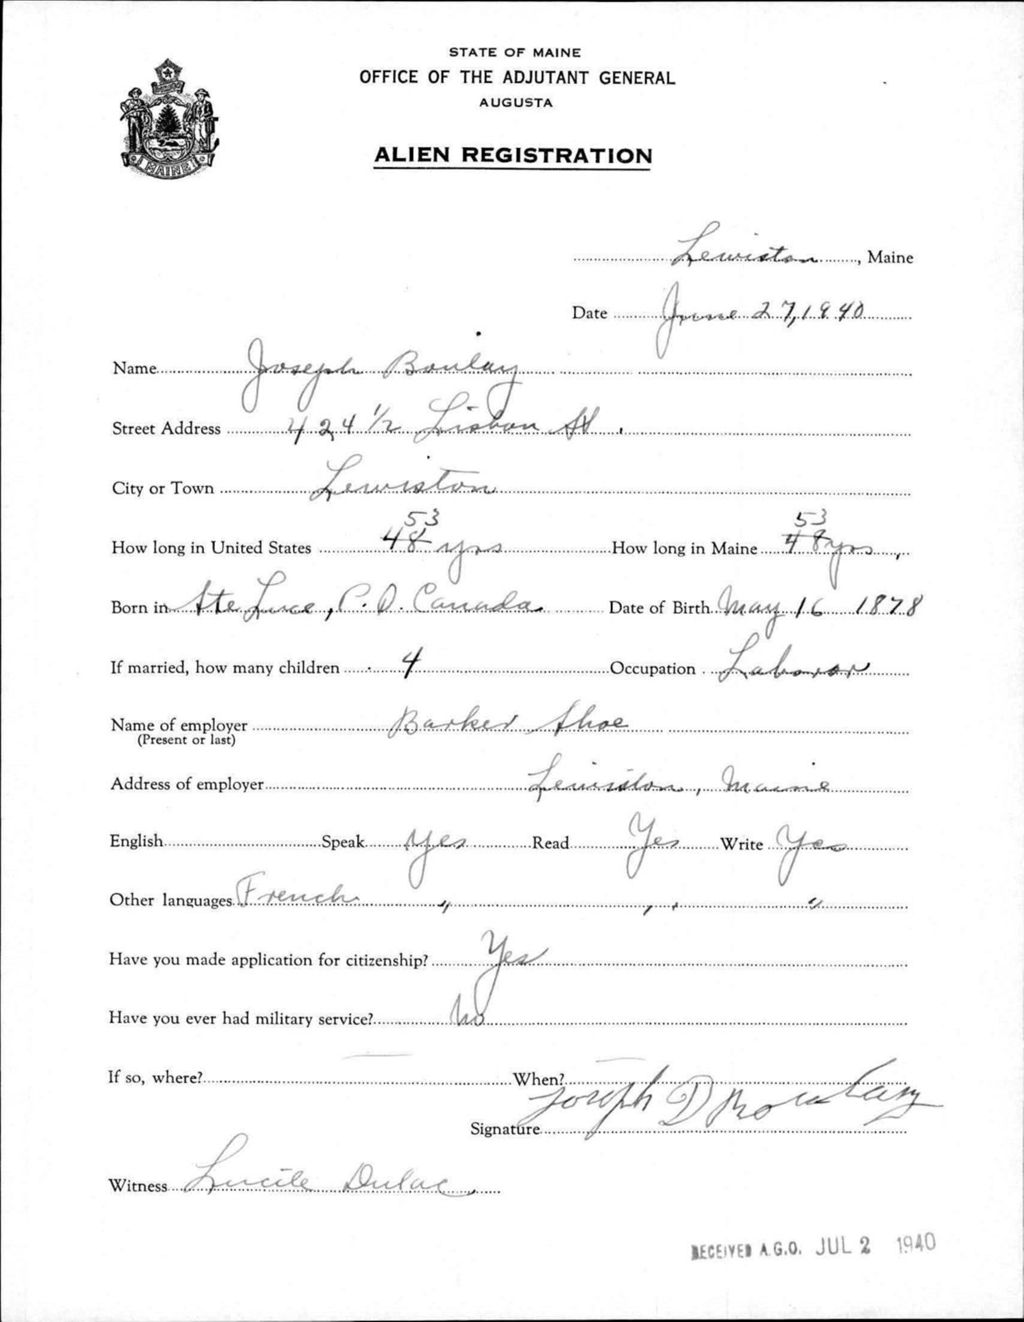 STATE OF MAINE
OFFICE OF THE ADJUTANT GENERAL
AUGUSTA
ALIEN REGISTRATION
MAINE
Lewiston, Maine
Date June 27, 1940
Name Joseph Boulay
Street Address 424 1/2 Lisbon St.
City or Town Lewiston
53 53
How long in United States 48 yrs How long in Maine 48 yrs,
Born in Ste Luce, P.Q. Canada Date of Birth May 16 1878
If married, how many children 4 Occupation Laborer
Name of employer Barker Shoe
(Present or last)
Address of employer Lewiston, Maine
English Speak Yes Read Yes Write Yes
Other languages French " " "
Have you made application for citizenship? Yes
Have you ever had military service? No
If so, where? — When? —
Signature Joseph D Boulay
Witness Lucile Dulac
RECEIVED A.G.O. JUL 2 1940